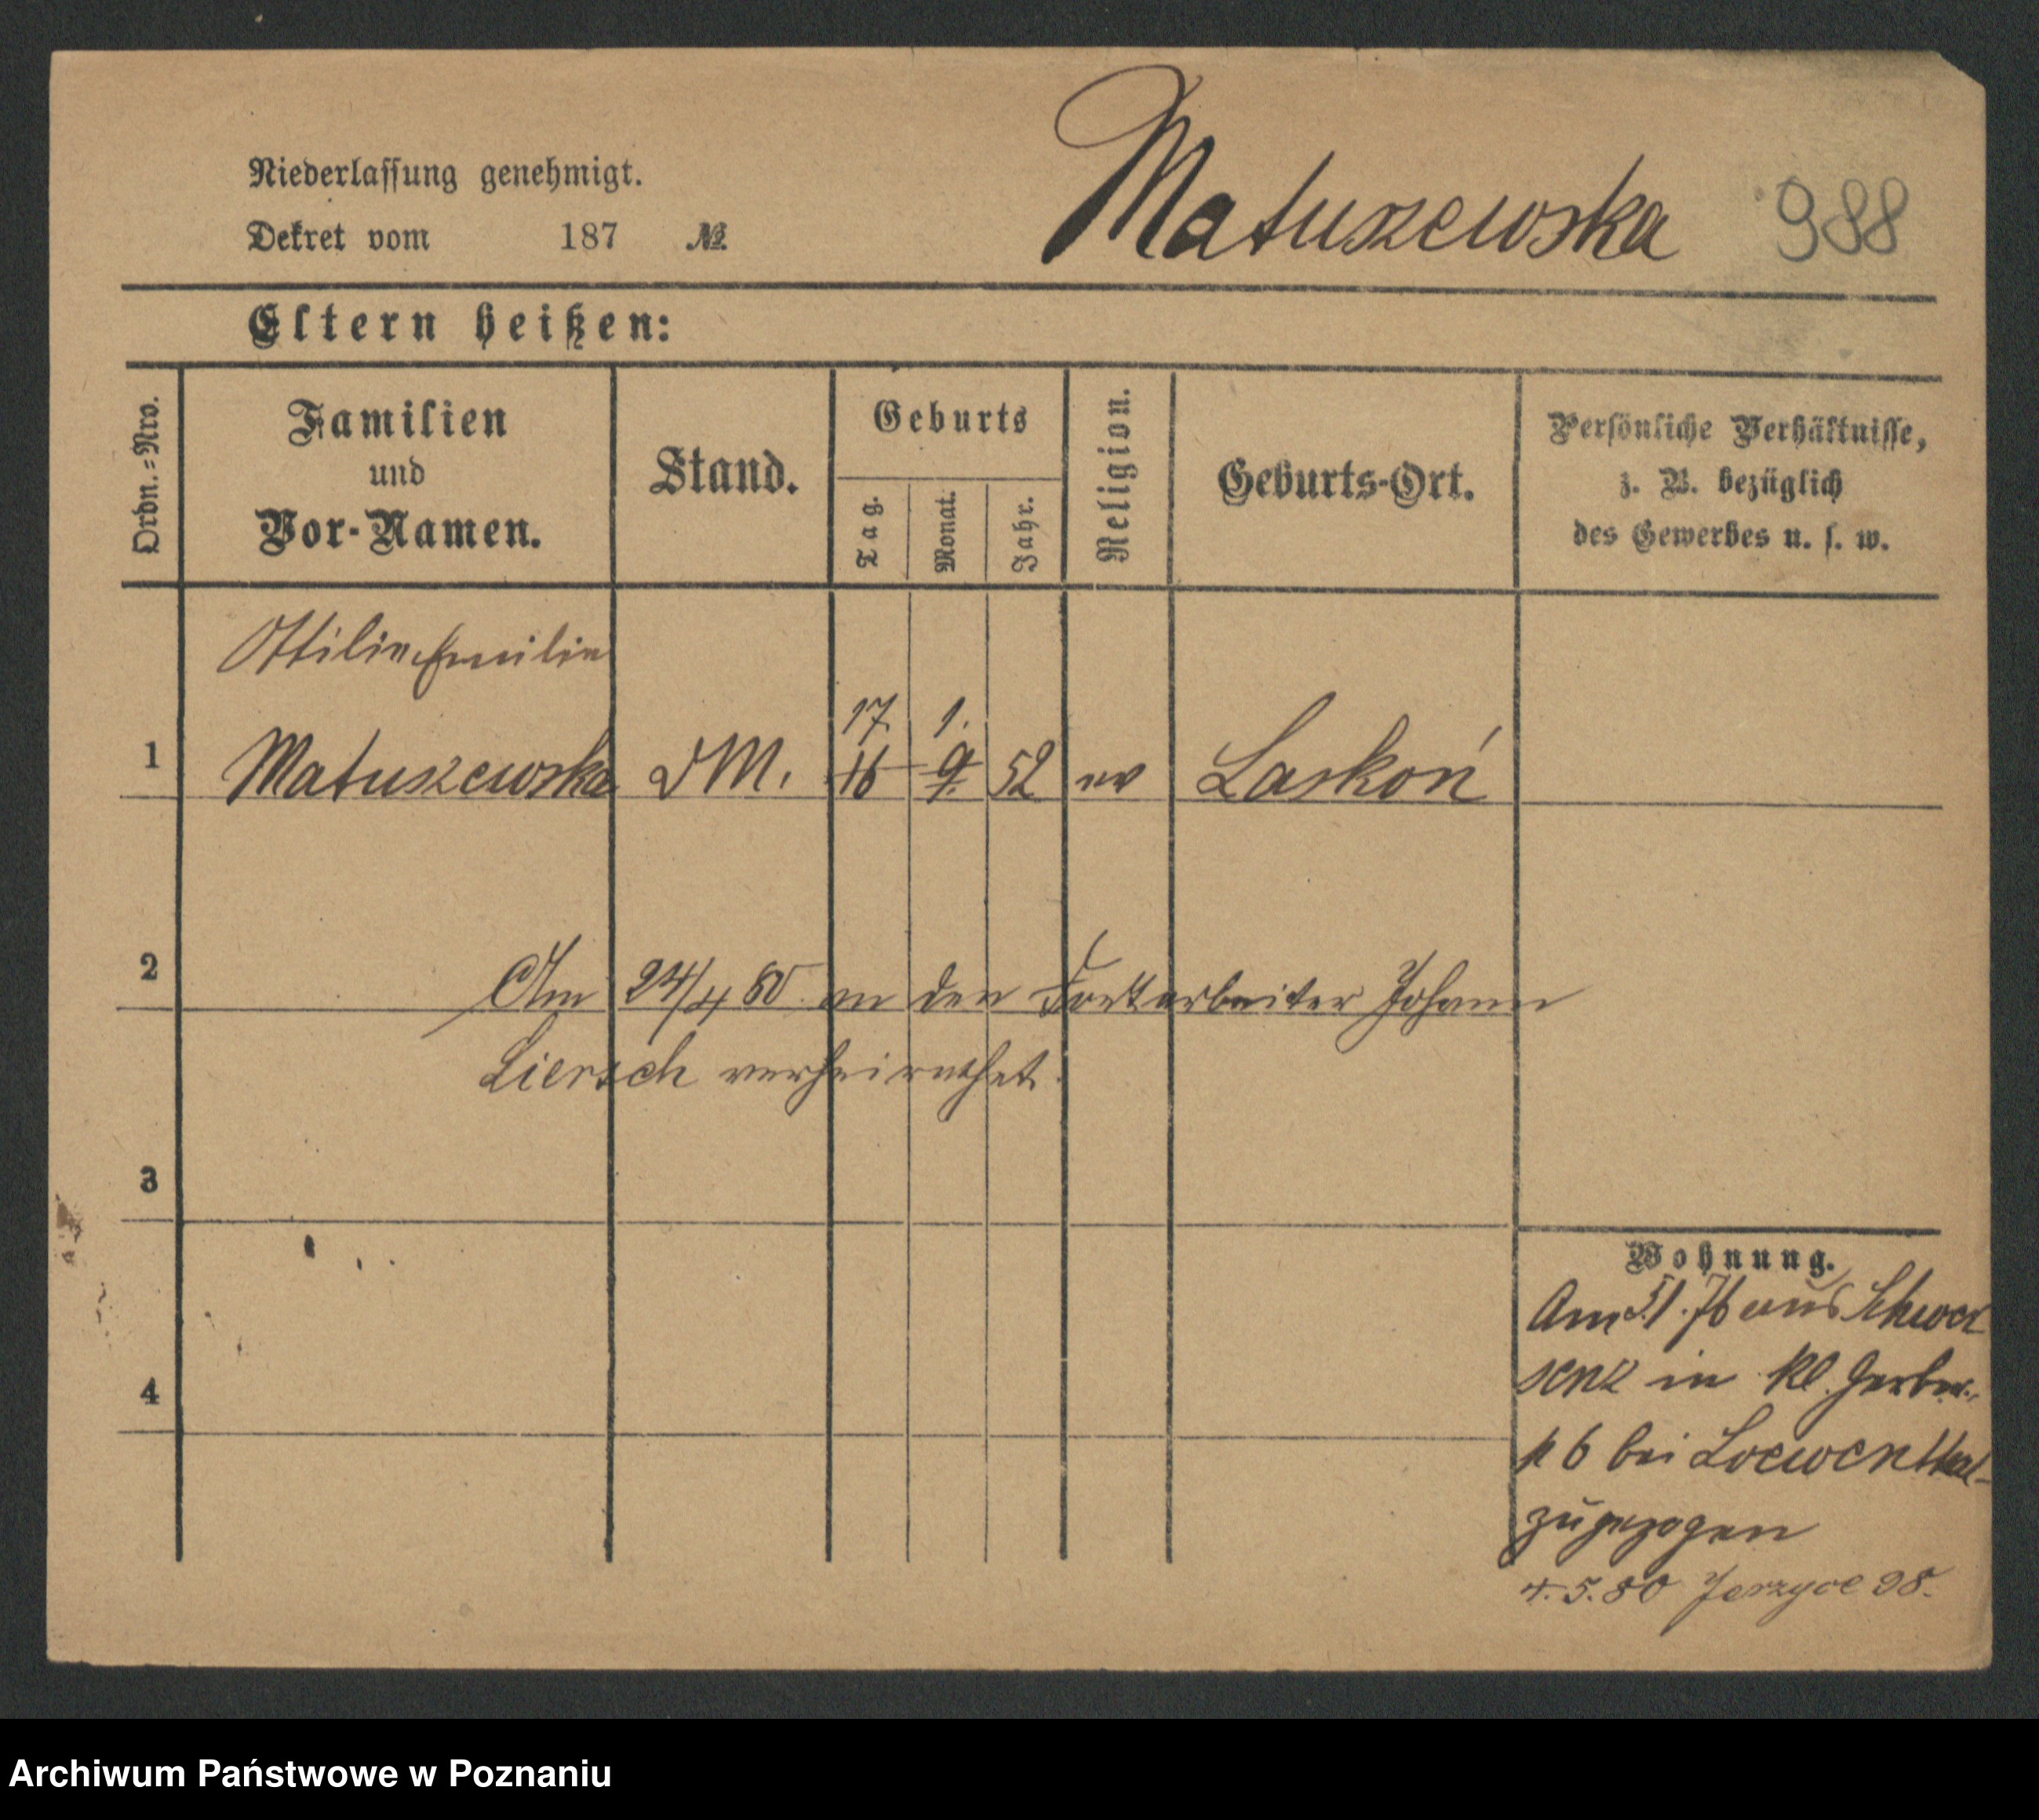 Matuszewska 988
Niederlassung genehmigt.
Dekret vom 187 №
Eltern heißen:
Ordn.=Nro.
Familien
und
Vor-Namen.
Stand.
Geburts
Tag.
Monat.
Jahr.
Religion.
Geburts-Ort.
Persönliche Verhältnisse,
z. B. bezüglich
des Gewerbes u. s. w.
Ottilie Emilie
17. 1.
1 Matuszewska DM. 16 9. 52 ev Laskoń
2
Am 24/4 80 an den Forstarbeiter Johann
Liersch verheirathet.
3
4
Wohnung.
Am 5/1. 76 aus Schwer
senz in Kl. Gerber.
№ 6 bei Loewenthal
zugezogen
4.5.80 Jerzyce 98.
Archiwum Państwowe w Poznaniu